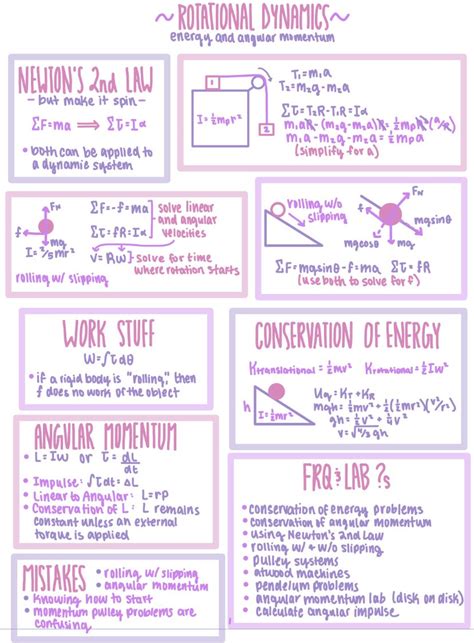 ~ROTATIONAL DYNAMICS~
energy and angular momentum
NEWTON'S 2nd LAW
- but make it spin -
ΣF=ma ⟹ Στ=Iα
• both can be applied to
a dynamic system
1
2
I=½mpr²
T₁=m₁a
T₂=m₂g-m₂a
Στ=T₂R-T₁R=Iα
m₁aR-(m₂g-m₂a)R=½mpR²(a/R)
m₁a-m₂g-m₂a=½mpa
(simplify for a)
FN
f
mg
I=²/₅mr²
rolling w/ slipping
ΣF=-f=ma
Στ=fR=Iα
solve linear
and angular
velocities
V=RW
solve for time
where rotation starts
rolling w/o
slipping
FN
f
mgsinθ
mgcosθ
mg
ΣF=mgsinθ-f=ma Στ=fR
(use both to solve for f)
WORK STUFF
W=∫τdθ
• if a rigid body is "rolling," then
f does no work or the object
CONSERVATION OF ENERGY
Ktranslational = ½mv² Krotational = ½Iw²
h
I=½mr²
Ug=KT+KR
mgh=½mv²+½(½mr²)(v²/r²)
gh=½v²+¼v²
v=√⁴/₃gh
ANGULAR MOMENTUM
• L=Iw or τ=dL/dt
• Impulse: ∫τdt=ΔL
• Linear to Angular: L=rp
• Conservation of L: L remains
constant unless an external
torque is applied
FRQ & LAB ?s
• conservation of energy problems
• conservation of angular momentum
• using Newton's 2nd Law
• rolling w/ + w/o slipping
• pulley systems
• atwood machines
• pendelum problems
• angular momentum lab (disk on disk)
• calculate angular impulse
MISTAKES
• rolling w/ slipping
• angular momentum
• Knowing how to start
• momentum pulley problems are
confusing